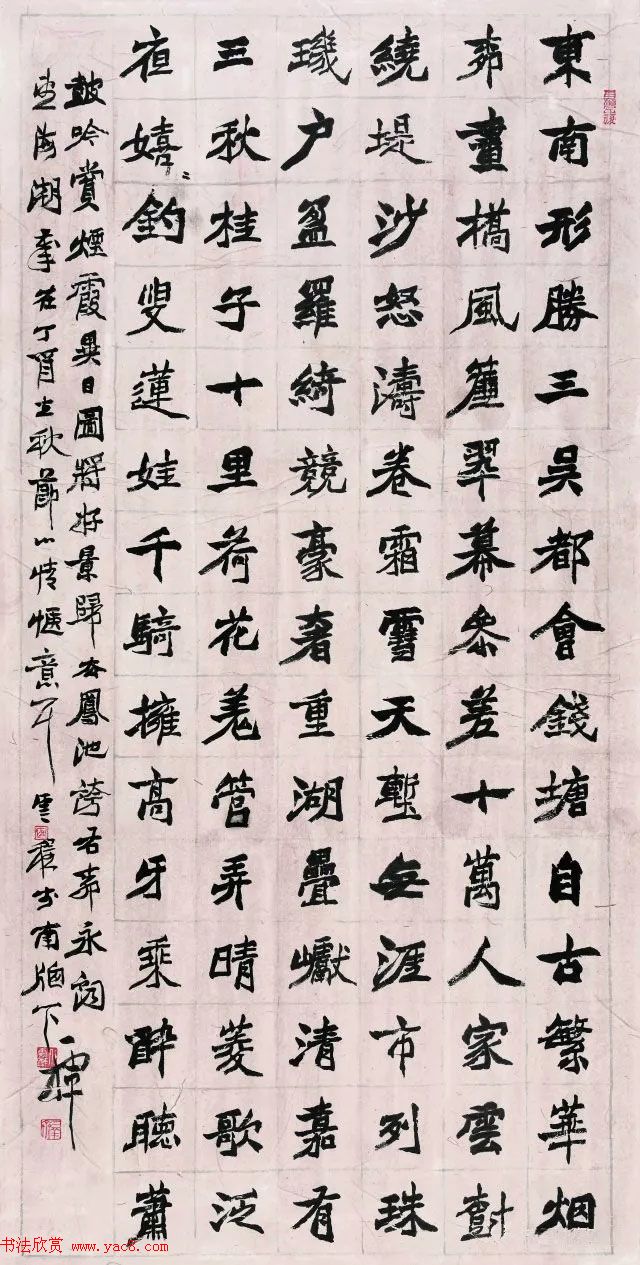 東南形勝三吳都會錢塘自古繁華烟
桺畫橋風簾翠幕叅差十萬人家雲樹
繞堤沙怒濤卷霜雪天塹無涯市列珠
璣户盈羅綺競豪奢重湖疊巘清嘉有
三秋桂子十里荷花羌管弄晴菱歌泛
夜嬉嬉釣叟蓮娃千騎擁高牙乘醉聽蕭
鼓吟賞煙霞異日圖將好景歸去鳳池誇右桺永詞
海潮 丁酉 秋節 情 意 雲 於南 下
书法欣赏 www.yac8.com